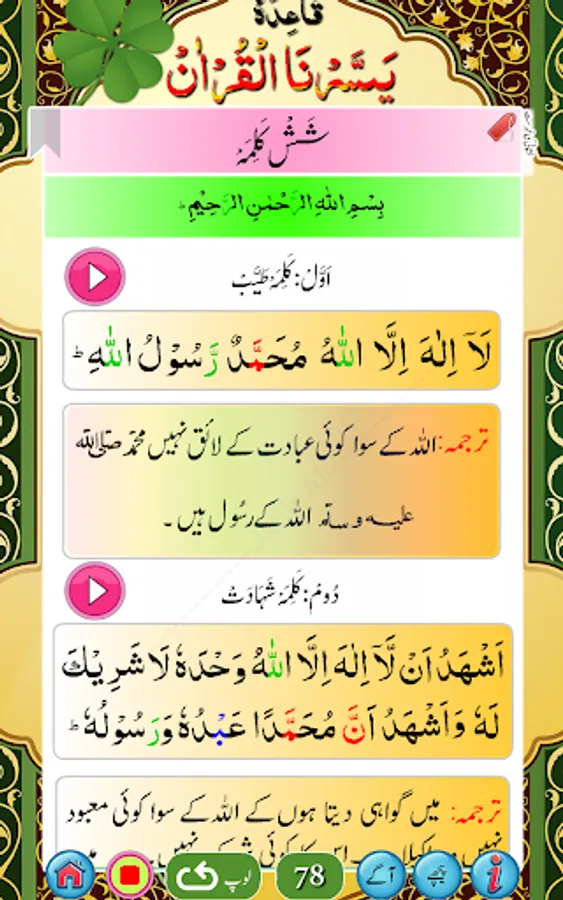 قاعِدَہ
یَسَّرْنَا الْقُرْاٰن
شَشْ کَلِمَہْ
بِسْمِ اللّٰهِ الرَّحْمٰنِ الرَّحِیْمِ ؕ
اَوَّل: کَلِمَۂ طَیَّبْ
لَآ اِلٰهَ اِلَّا اللّٰهُ مُحَمَّدٌ رَّسُوْلُ اللّٰهِ ؕ
ترجمہ: اللہ کے سوا کوئی عبادت کے لائق نہیں محمّد صلی اللہ
علیہ وسلم اللہ کے رسُول ہیں ۔
دُوم: کَلِمَۂ شَہَادَتْ
اَشْهَدُ اَنْ لَّآ اِلٰهَ اِلَّا اللّٰهُ وَحْدَهٗ لَا شَرِیْكَ
لَهٗ وَاَشْهَدُ اَنَّ مُحَمَّدًا عَبْدُهٗ وَرَسُوْلُهٗ ؕ
ترجمہ: میں گواہی دیتا ہوں کے اللہ کے سوا کوئی معبود
نہیں
لوپ 78 آگے پیچھے i